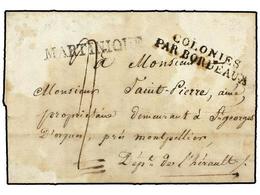 MARTINIQUE
COLONIES
PAR BORDEAUX
à Monsieur
Monsieur Saint-Pierre, ainé
propriétaire demeurant à St Georges
D'orques, près montpellier,
Dépt. de l'hérault.